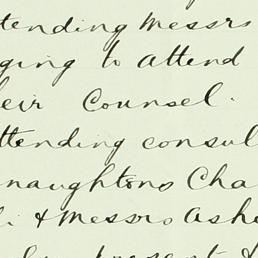 tending Messrs
ging to attend
eir Counsel.
ttending consul
naughtons Cha
& Messrs Ashu
present &